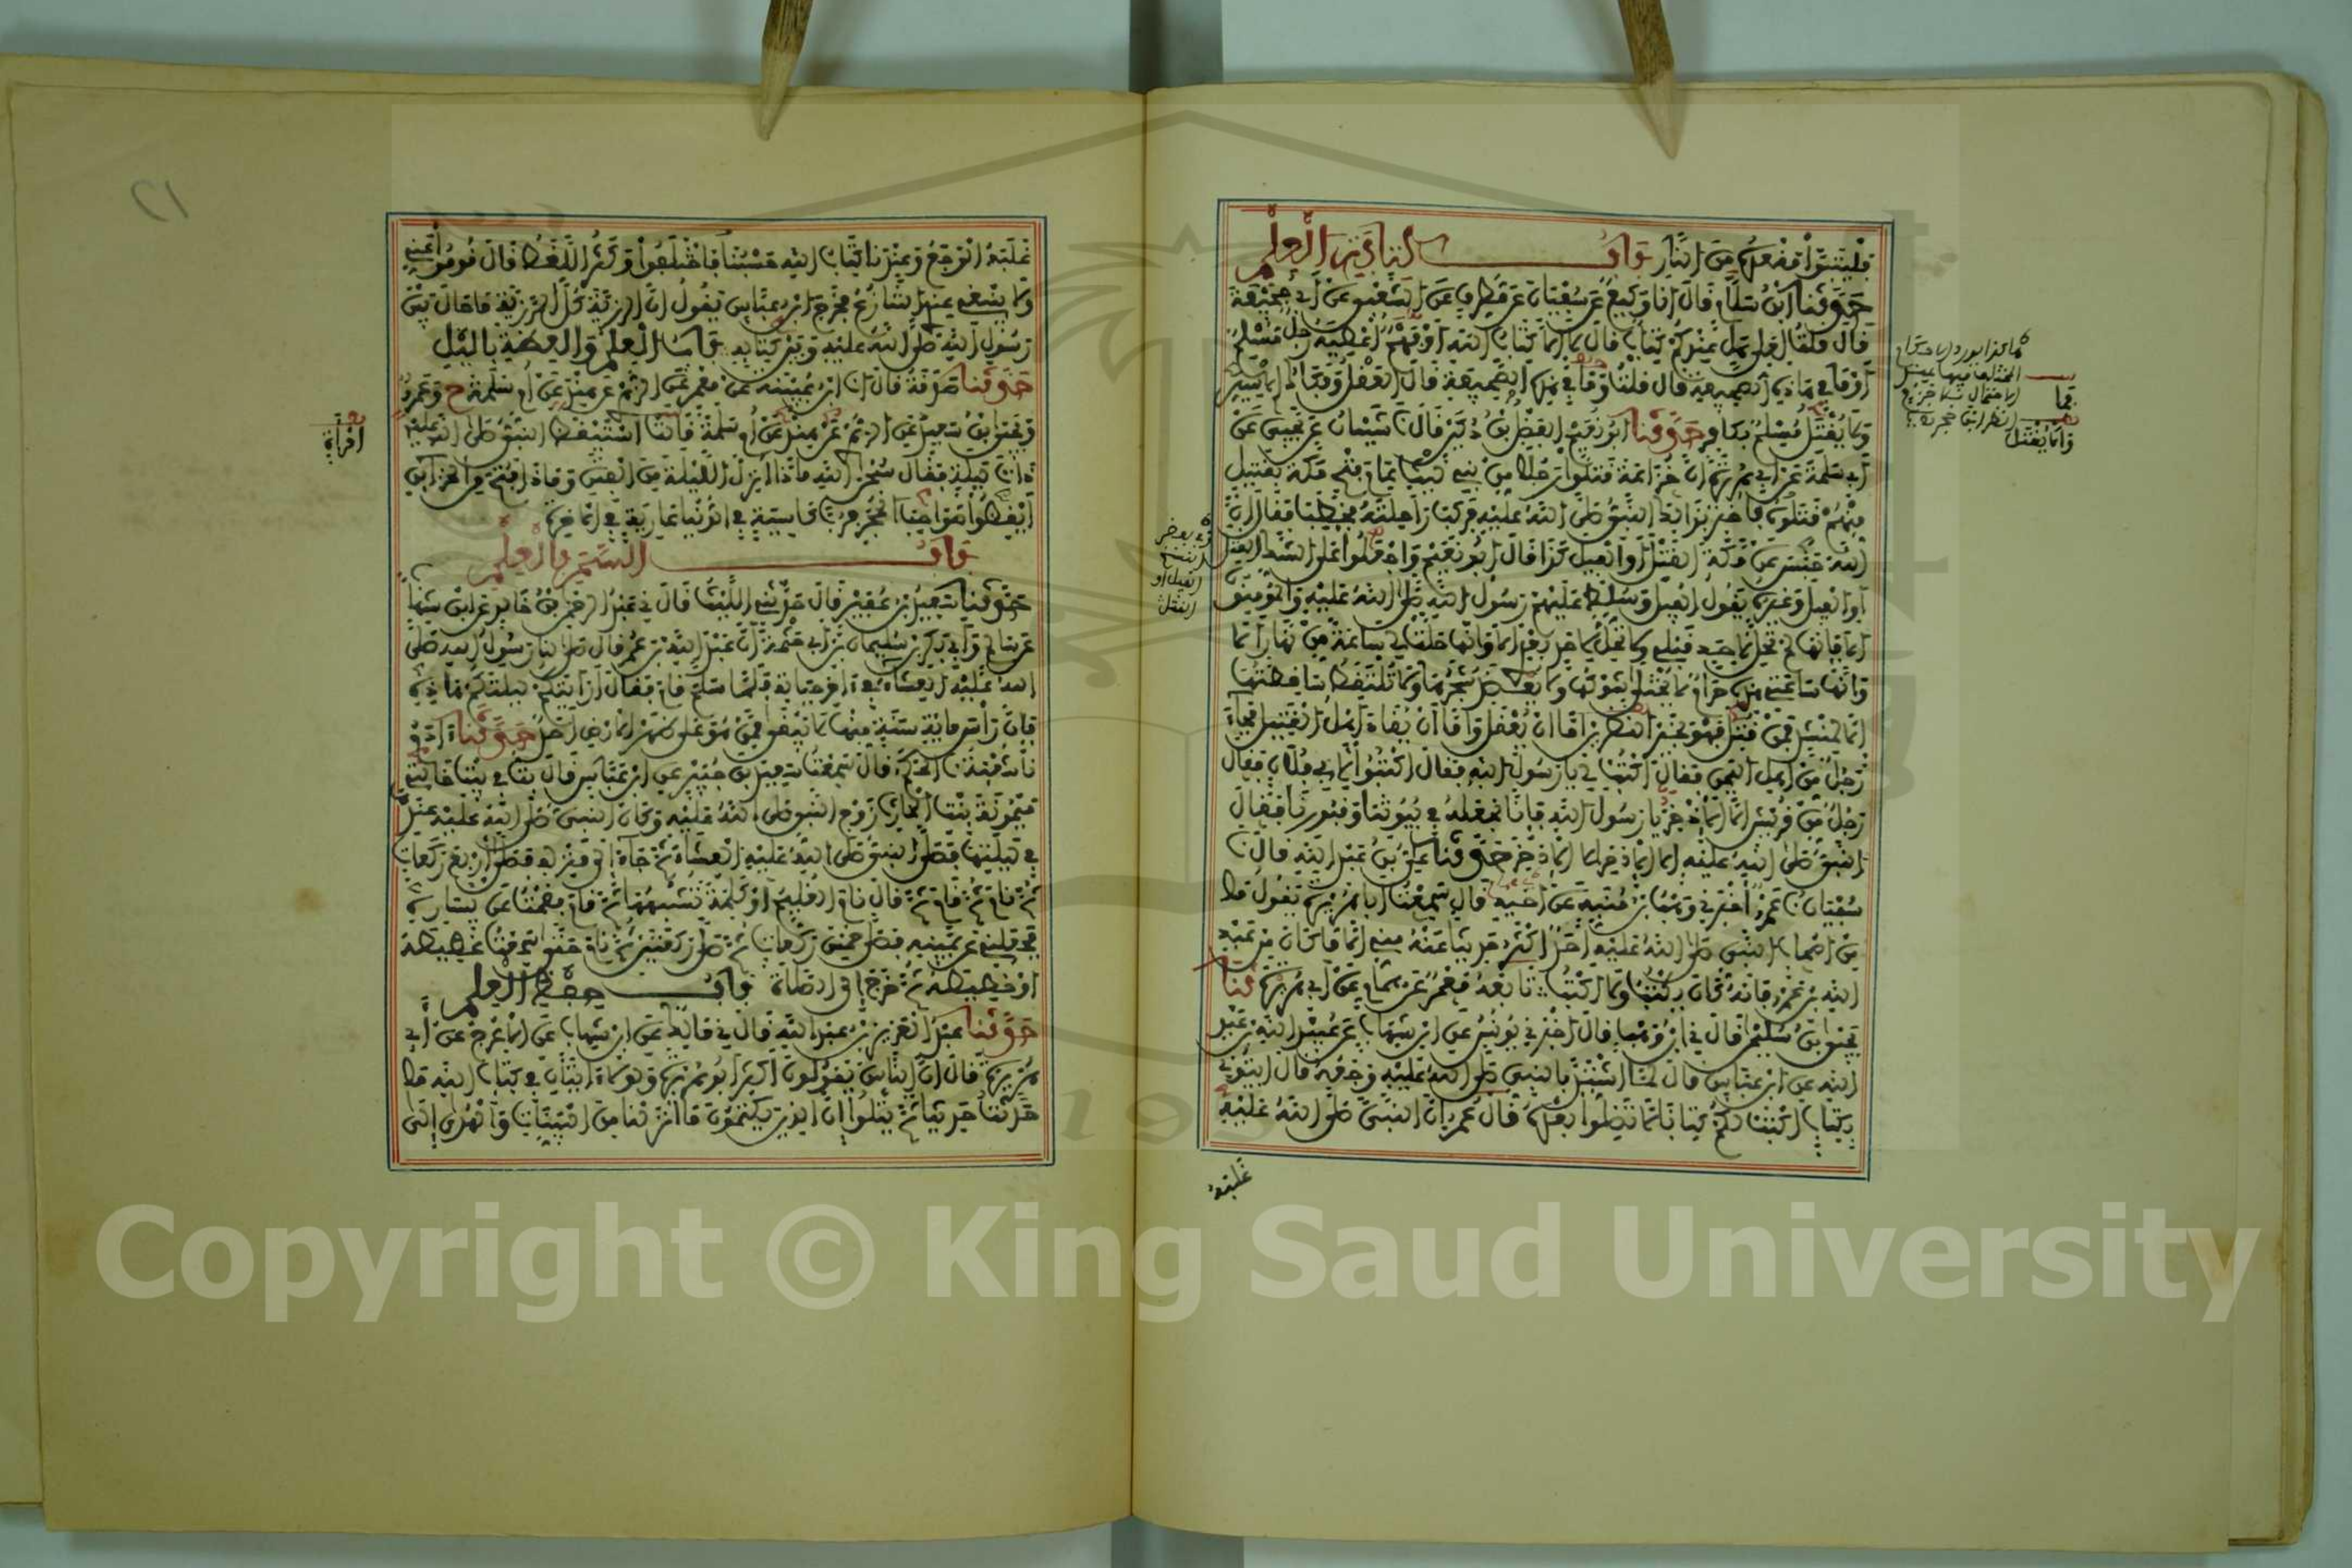 فليتبوأ مقعده من النار باب كتابة العلم
حدثنا ابن سلام قال انا وكيع عن سفيان عن مطرف عن الشعبي عن أبي جحيفة
قال قلت لعلي هل عندكم كتاب قال لا إلا كتاب الله أو فهم أعطيه رجل مسلم
أو ما في هاذه الصحيفة قال قلت وما في هذه الصحيفة قال العقل وفكاك الأسير
ولا يقتل مسلم بكافر حدثنا أبو نعيم الفضل بن دكين قال نا شيبان عن يحيى عن
أبي سلمة عن أبي هريرة أن خزاعة قتلوا رجلا من بني ليث عام فتح مكة بقتيل
منهم قتلوه فأخبر بذلك النبي صلى الله عليه فركب راحلته فخطب فقال إن
الله حبس عن مكة القتل أو الفيل كذا قال أبو نعيم واجعلوا على الشك القتل
أو الفيل وغيره يقول الفيل وسلط عليهم رسول الله صلى الله عليه والمؤمنون
ألا فإنها لم تحل لأحد قبلي ولا تحل لأحد بعدي ألا وإنها حلت لي ساعة من نهار ألا
وإنها ساعتي هذه حرام لا يختلى شوكها ولا يعضد شجرها ولا تلتقط ساقطتها
إلا لمنشد فمن قتل فهو بخير النظرين إما أن يعقل وإما أن يقاد أهل القتيل فجاء
رجل من أهل اليمن فقال اكتب لي يا رسول الله فقال اكتبوا لأبي فلان فقال
رجل من قريش إلا الإذخر يا رسول الله فإنا نجعله في بيوتنا وقبورنا فقال
النبي صلى الله عليه إلا الإذخر إلا الإذخر حدثنا علي بن عبد الله قال نا
سفيان نا عمرو أخبرني وهب بن منبه عن أخيه قال سمعت أبا هريرة يقول ما
من أصحاب النبي صلى الله عليه أحد أكثر حديثا عنه مني إلا ما كان من عبد
الله بن عمرو فإنه كان يكتب ولا أكتب تابعه معمر عن همام عن أبي هريرة ثنا
يحيى بن سليمن قال ني ابن وهب قال أخبرني يونس عن ابن شهاب عن عبيد الله بن عبد
الله عن ابن عباس قال لما اشتد بالنبي صلى الله عليه وجعه قال ايتوني
بكتاب أكتب لكم كتابا لا تضلوا بعده قال عمر إن النبي صلى الله عليه
غلبه
فما
ولا يقتل
غلبه الوجع وعندنا كتاب الله حسبنا فاختلفوا وكثر اللغط قال قوموا عني
ولا ينبغي عندي التنازع فخرج ابن عباس يقول إن الرزية كل الرزية ما حال بين
رسول الله صلى الله عليه وبين كتابه باب العلم والعظة بالليل
حدثنا صدقة قال انا ابن عيينة عن معمر عن الزهري عن هند عن أم سلمة ح وعمرو
ويحيى بن سعيد عن الزهري عن هند عن أم سلمة قالت استيقظ النبي صلى الله عليه
ذات ليلة فقال سبحن الله ماذا أنزل الليلة من الفتن وماذا فتح من الخزائن
أيقظوا صواحب الحجر فرب كاسية في الدنيا عارية في الآخرة
باب السمر بالعلم
حدثنا سعيد بن عفير قال حدثني الليث قال ني عبد الرحمن بن خالد عن ابن شهاب
عن سالم وأبي بكر بن سليمان بن أبي حثمة أن عبد الله بن عمر قال صلى لنا رسول الله صلى
الله عليه العشاء في آخر حياته فلما سلم قام فقال أرأيتكم ليلتكم هاذه
فإن رأس مائة سنة منها لا يبقى ممن هو على ظهر الأرض أحد حدثنا آدم
نا شعبة نا الحكم قال سمعت سعيد بن جبير عن ابن عباس قال بت في بيت خالتي
ميمونة بنت الحارث زوج النبي صلى الله عليه وكان النبي صلى الله عليه عندها
في ليلتها فصلى النبي صلى الله عليه العشاء ثم جاء إلى منزله فصلى أربع ركعات
ثم نام ثم قام ثم قال نام الغليم أو كلمة تشبهها ثم قام فقمت عن يساره
فجعلني عن يمينه فصلى خمس ركعات ثم صلى ركعتين ثم نام حتى سمعت غطيطه
أو خطيطه ثم خرج إلى الصلاة باب حفظ العلم
حدثنا عبد العزيز بن عبد الله قال ني مالك عن ابن شهاب عن الأعرج عن أبي
هريرة قال إن الناس يقولون أكثر أبو هريرة ولولا آيتان في كتاب الله ما
حدثت حديثا ثم يتلوا إن الذين يكتمون ما أنزلنا من البينات والهدى إلى
امرأة
٢١
Copyright © King Saud University